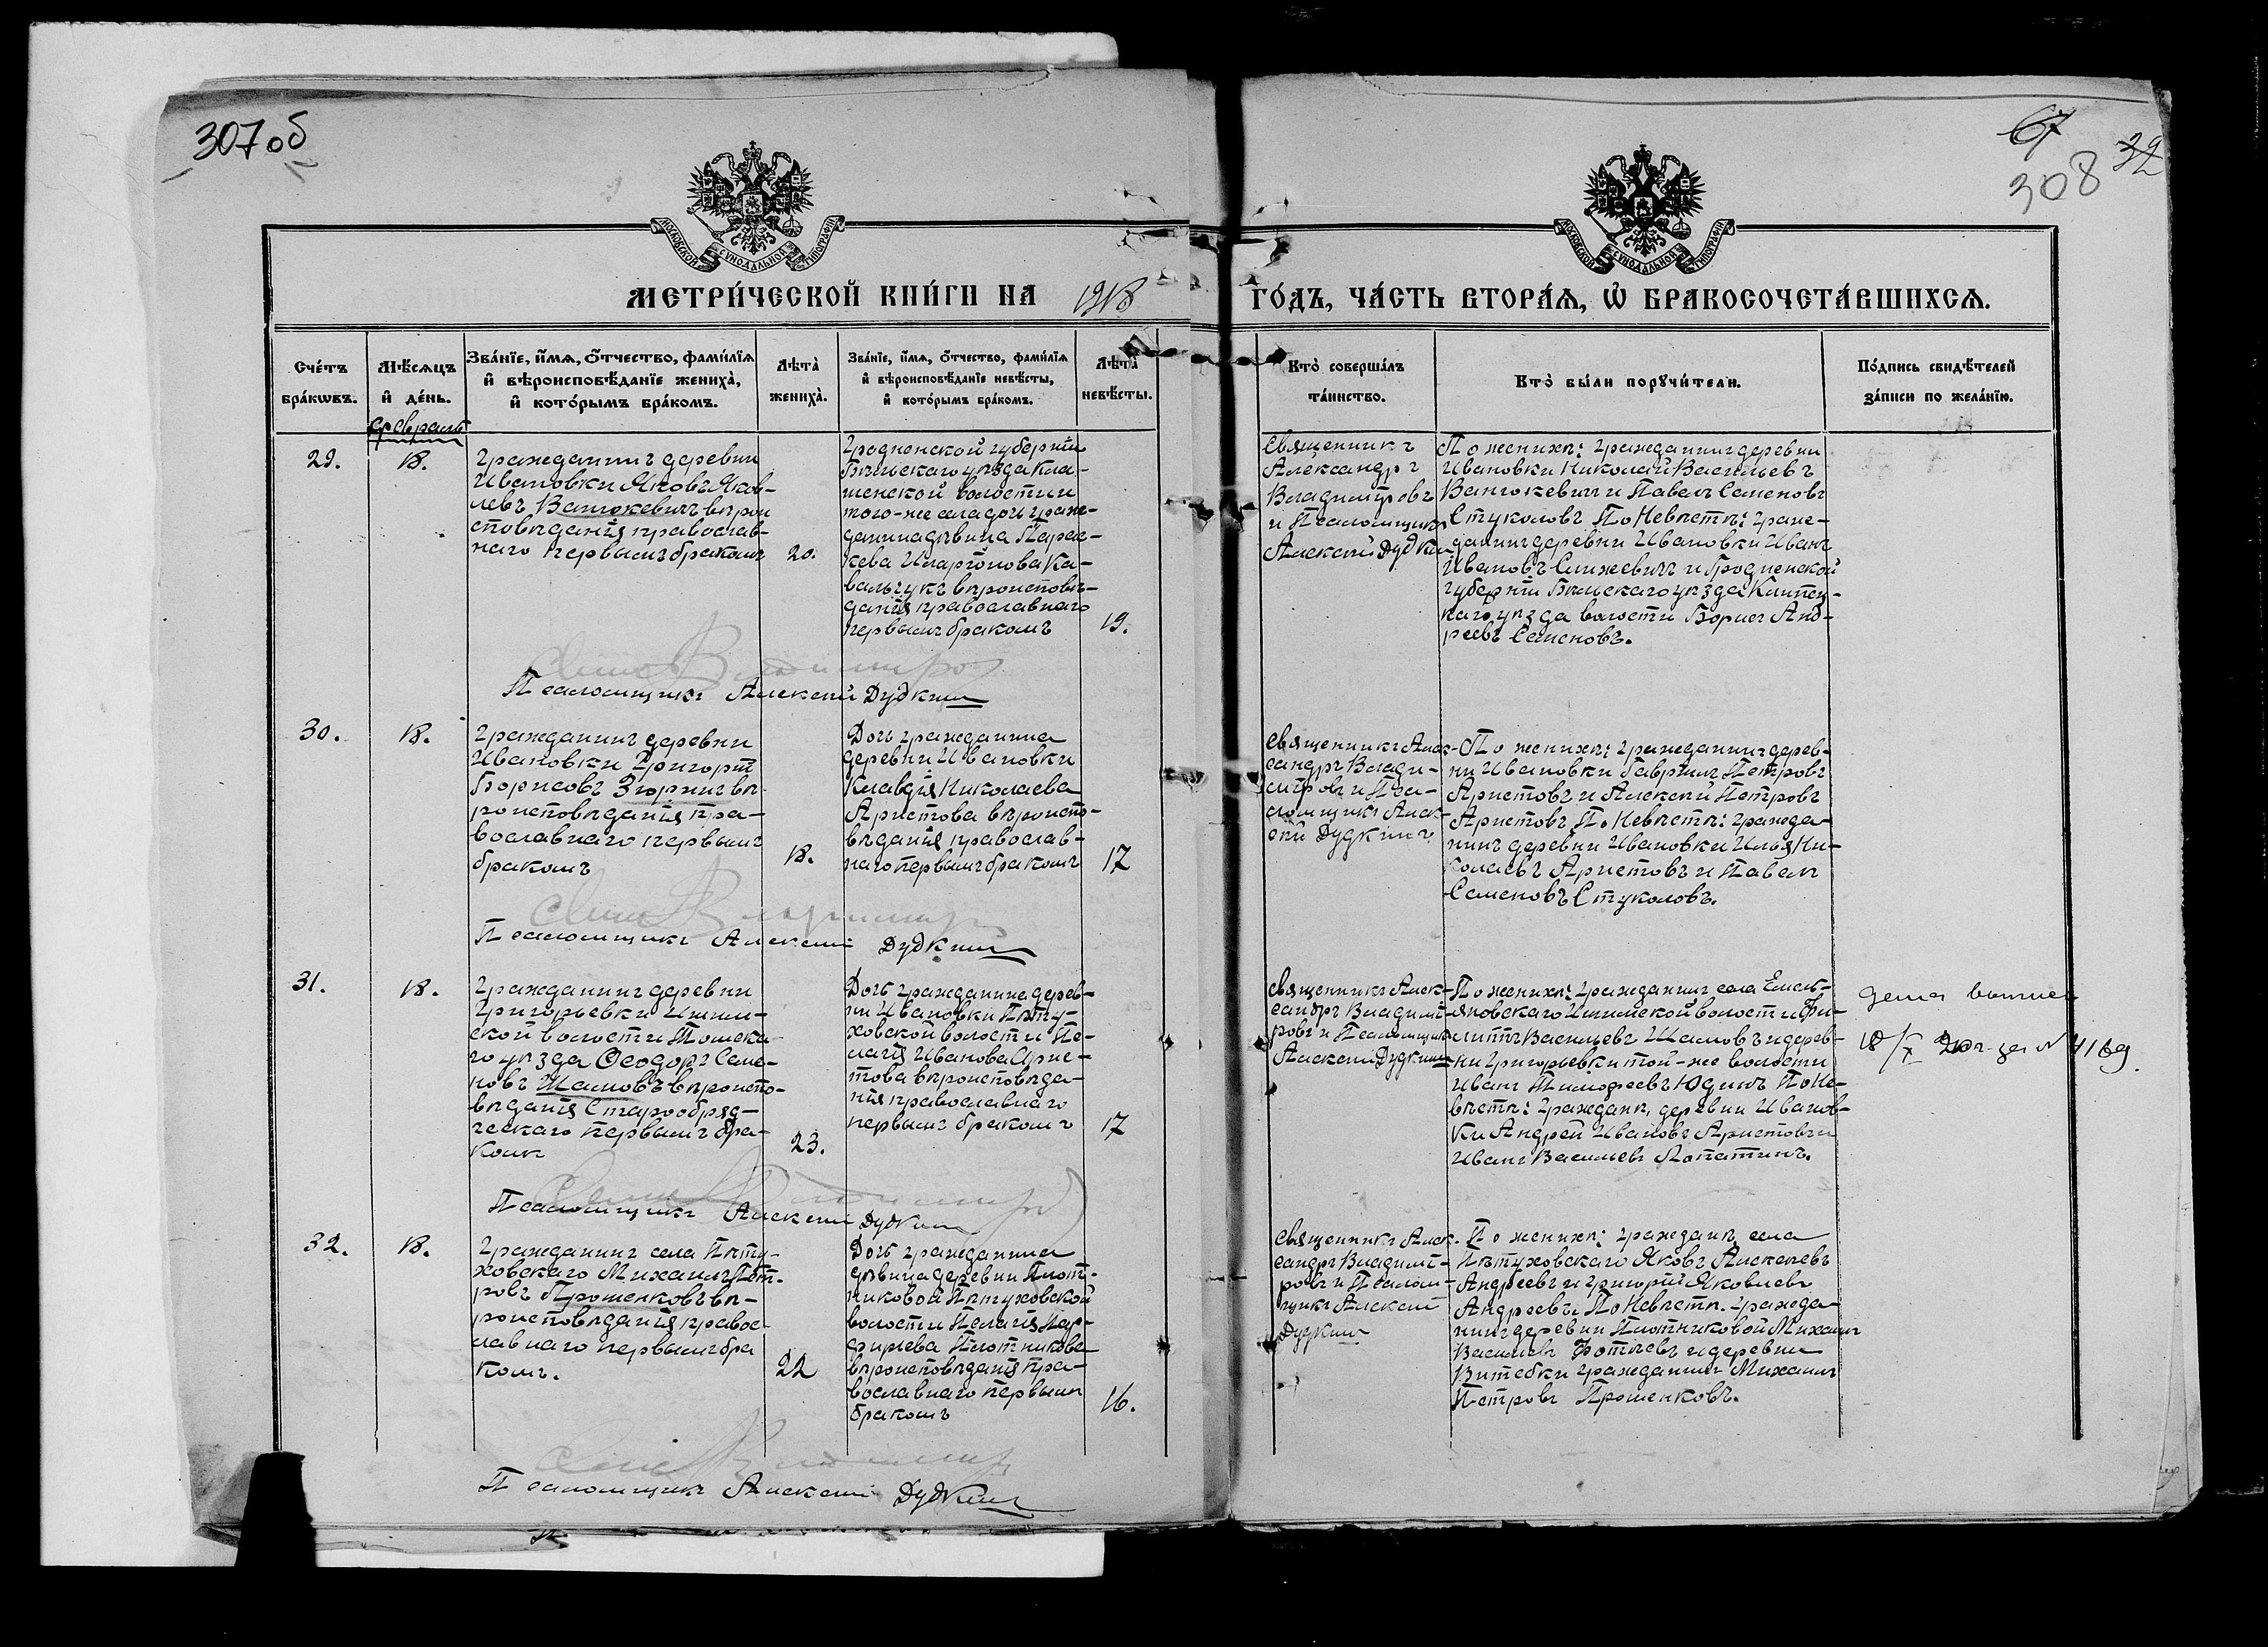 307 об
67
308
32
МОСКОВСКОЙ СѴНОДАЛЬНОЙ ТИПОГРАФІИ
МОСКОВСКОЙ СѴНОДАЛЬНОЙ ТИПОГРАФІИ
МЕТРИ́ЧЕСКОЙ КНИ́ГИ НА 1918 ГО́ДЪ, ЧА́СТЬ ВТОРА́Ѧ, Ѡ҆ БРАКОСОЧЕТА́ВШИХСѦ.
Сче́тъ бра́кѡвъ.
Мѣ́сяцъ и҆ де́нь.
Зва́нїе, и҆́мѧ, ѻ҆́тчество, фамн́лїѧ
и҆ вѣроисповѣ́данїе жениха̀,
и҆ кото́рымъ бра́комъ.
Лѣта̀ жениха̀.
Зва́нїе, и҆́мѧ, ѻ҆́тчество, фами́лїѧ
и҆ вѣроисповѣ́данїе невѣ́сты,
и҆ кото́рымъ бра́комъ.
Лѣта̀ невѣ́сты.
Кто̀ соверша́лъ та́инство.
Кто̀ бы́ли порꙋчи́тели.
По́дпись свидѣ́телей за́писи по жела́нїю.
Февраль
29.
18.
Гражданинъ деревни
Ивановки Яковъ Яков-
левъ Ванюкевичъ вѣрои
сповѣданія православ-
наго первымъ бракомъ
20.
Гродненской губерніи
Бѣльскаго уѣзда Кле-
щенской волости и
того-же села дочь граж-
данина дѣвица Парас-
кева Иларіонова Ка-
вальчукъ вѣроисповѣ-
данія православнаго
первымъ бракомъ
19.
Священникъ
Александръ
Владиміровъ
и Псаломщикъ
Алексей Дудкин
По женихѣ: гражданинъ деревни
Ивановки Николай Васильевъ
Ванюкевичъ и Павелъ Семеновъ
Стуколовъ По Невѣстѣ: граж-
данинъ деревни Ивановки Иванъ
Ивановъ Синкевичъ и Гродненской
губерніи Бѣльскаго уѣзда
каго уѣзда волости Борисъ Анд-
реевъ Семеновъ.
Псаломщикъ Алексей Дудкинъ
30.
18.
Гражданинъ деревни
Ивановки Григорій
Борисовъ Згорничъ вѣ-
роисповѣданія пра-
вославнаго первымъ
бракомъ
18.
Дочь гражданина
деревни Ивановки
Клавдія Николаева
Аристова вѣроиспо-
вѣданія православ-
наго первымъ бракомъ
17
Священникъ Алек-
сандръ Влади-
міровъ и Пса-
ломщикъ Алек-
сей Дудкинъ
По женихѣ: гражданинъ дерев-
ни Ивановки Гавріилъ Петровъ
Аристовъ и Алексей Петровъ
Аристовъ По Невѣстѣ: гражда-
нинъ деревни Ивановки Илья Ни-
колаевъ Аристовъ и Павелъ
Семеновъ Стуколовъ.
Псаломщикъ Алексей Дудкинъ
31.
18.
Гражданинъ деревни
Григорьевки Ишим-
ской волости Томска-
го уѣзда Ѳеодоръ Семе-
новъ Шаловъ вѣроиспо-
вѣданія Старообряд-
ческаго первымъ бра-
комъ
23.
Дочь гражданина дерев-
ни Ивановки Пѣту-
ховской волости Пе-
лагія Иванова Арис-
това вѣроисповѣда-
нія православнаго
первымъ бракомъ
17
Священникъ Алек-
сандръ Владимі-
ровъ и Псаломщикъ
Алексей Дудкинъ
По женихѣ: гражданинъ села Емель-
яновскаго Ишимской волости Фи-
липпъ Васильевъ Шаловъ и дерев-
ни Григорьевки той-же волости
Иванъ Тимофеевъ Юдинъ По Не-
вѣстѣ: граждан, деревни Иванов-
ки Андрей Ивановъ Аристовъ и
Иванъ Васильевъ Лопатинъ.
18/X 20 г. за № 4169
Псаломщикъ Алексей Дудкин
32.
18.
Гражданинъ села Пѣту-
ховскаго Михаилъ Пет-
ровъ Прошенковъ вѣ-
роисповѣданія правос-
лавнаго первымъ бра
комъ.
22
Дочь гражданина
дѣвица деревни Плот-
никовой Пѣтуховской
волости Пелагія Пар-
фирьева Плотникова
вѣроисповѣданія пра-
вославнаго первымъ
бракомъ
16.
Священникъ Алек-
сандръ Владимі-
ровъ и Псалом-
щикъ Алексей
Дудкин
По женихѣ: граждан, села
Пѣтуховскаго Яковъ Алексеевъ
Андреевъ и Григорій Яковлевъ
Андреевъ По Невѣстѣ. гражда-
нинъ деревни Плотниковой Михаилъ
Васильевъ Фотіевъ и деревни
Витебки гражданинъ Михаилъ
Петровъ Прошенковъ.
Псаломщикъ Алексей Дудкинъ